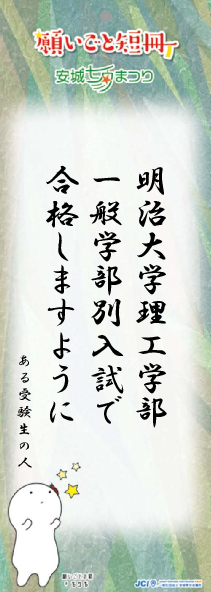 願いごと短冊
安城七夕まつり
明治大学理工学部
一般学部別入試で
合格しますように
ある受験生の人
JCI